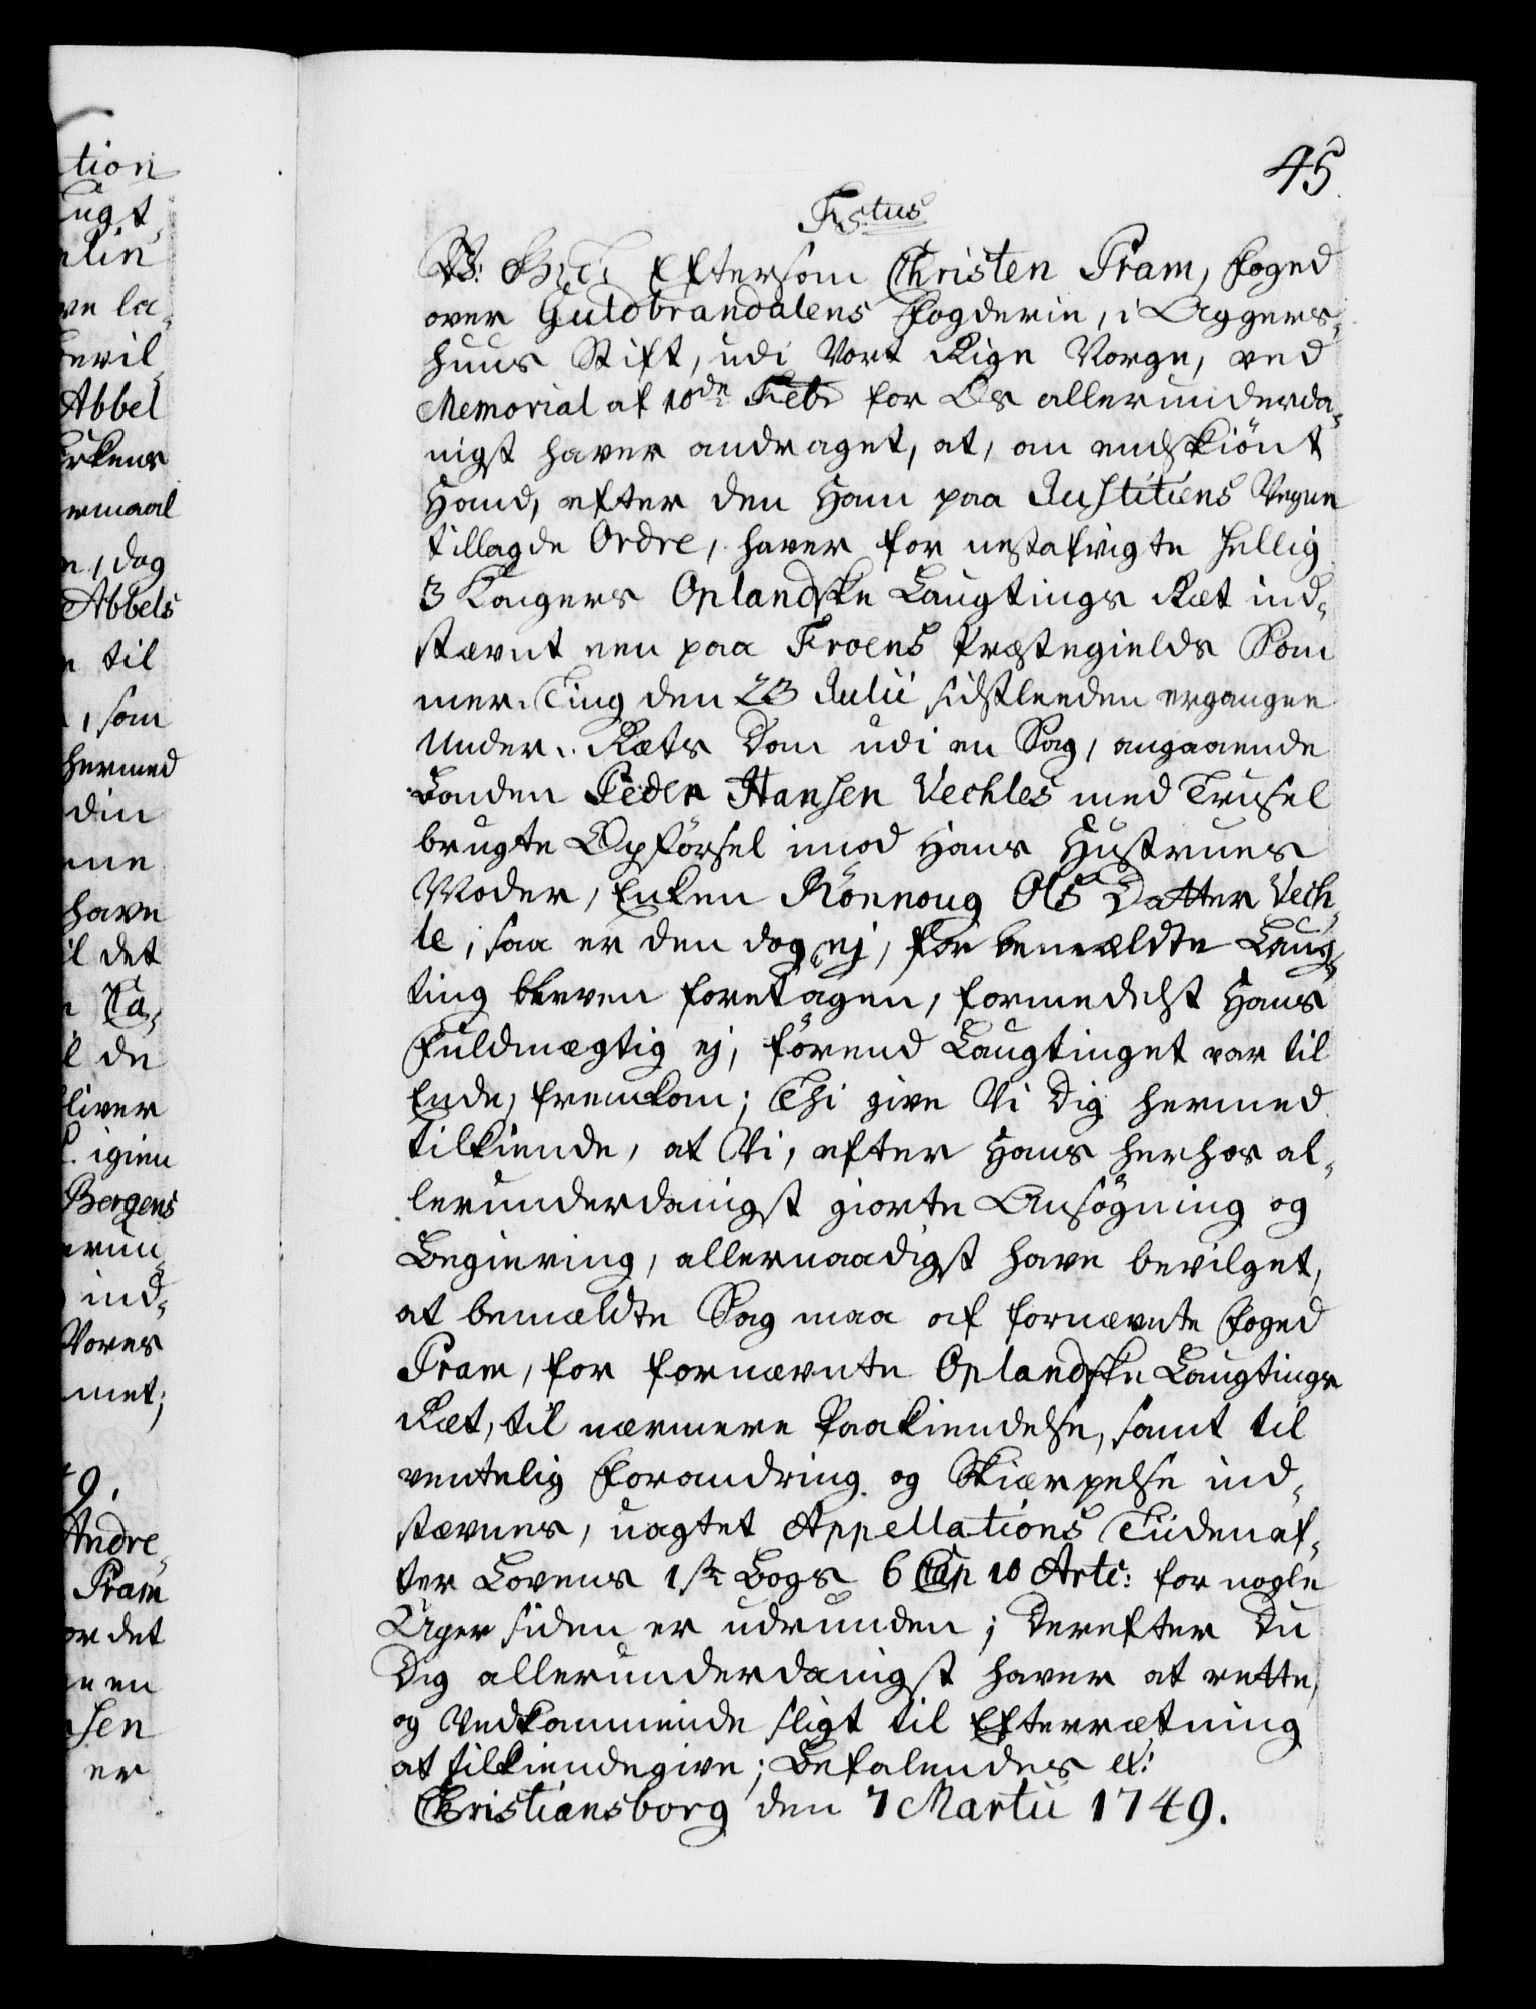 tion
ugt,
nlin
ve la-
bevil-
Abbel
irkens
ermaal
n, dog
Abbels
n til
, som
hermed
din
ene
have
il det
n Ca-
il de
bliver
igien
Bergens
erun-
ind-
Vores
met;
9.
Andre-
Pram
or det
een
nsen
er
45.
F 5tus
Eftersom Christen Pram, Foged
over Guldbrandalens Fogderie, i Aggers-
huus Stift, udi Vort Rige Norge, ved
Memorial af 10de Febr for Os allerunderda-
nigst haver andraget, at, om endskiönt
Hand, efter den Ham paa Justitiens Vegne
tillagde Ordre, haver for nestafvigte Hellig
3 Kongers Oplandske Laugtings Ræt ind-
stævnt een paa Froens Præstegields Som
mer-Ting den 23 Julii sidstleeden ergangne
Under-Ræts Dom udi en Sag, angaaende
Bonden Peder Hansen Vechles med Trusel
brugte Opförsel imod Hans Hustrues
Moder, Enken Rönnoug Ols Datter Vech-
le, saa er den dog ej, for bemældte Laug-
ting bleven foretagen, formedelst Hans
Fuldmægtig ej, förend Laugtinget var til
Ende, fremkom; Thi give Vi Dig hermed
tilkiende, at Vi, efter Hans herhos al-
lerunderdanigst giorte Ansögning og
Begiering, allernaadigst have bevilget,
at bemældte Sag maa af fornævnte Foged
Pram, for fornævnte Oplandske Laugtings
Ræt, til nærmere Paakiendelse, samt til
ventelig Forandring og Skiærpelse ind-
stævnes, uagtet Appellations Tiiden ef-
ter Lovens 1ste Bogs 6 Cap 10 Art: for nogle
Uger siden er udrunden; Derefter Du
Dig allerunderdanigst haver at rette,
og Vedkommende sligt til Efterrætning
at tilkiendegive; Befalendes et:
Christiansborg den 7 Martii 1749.